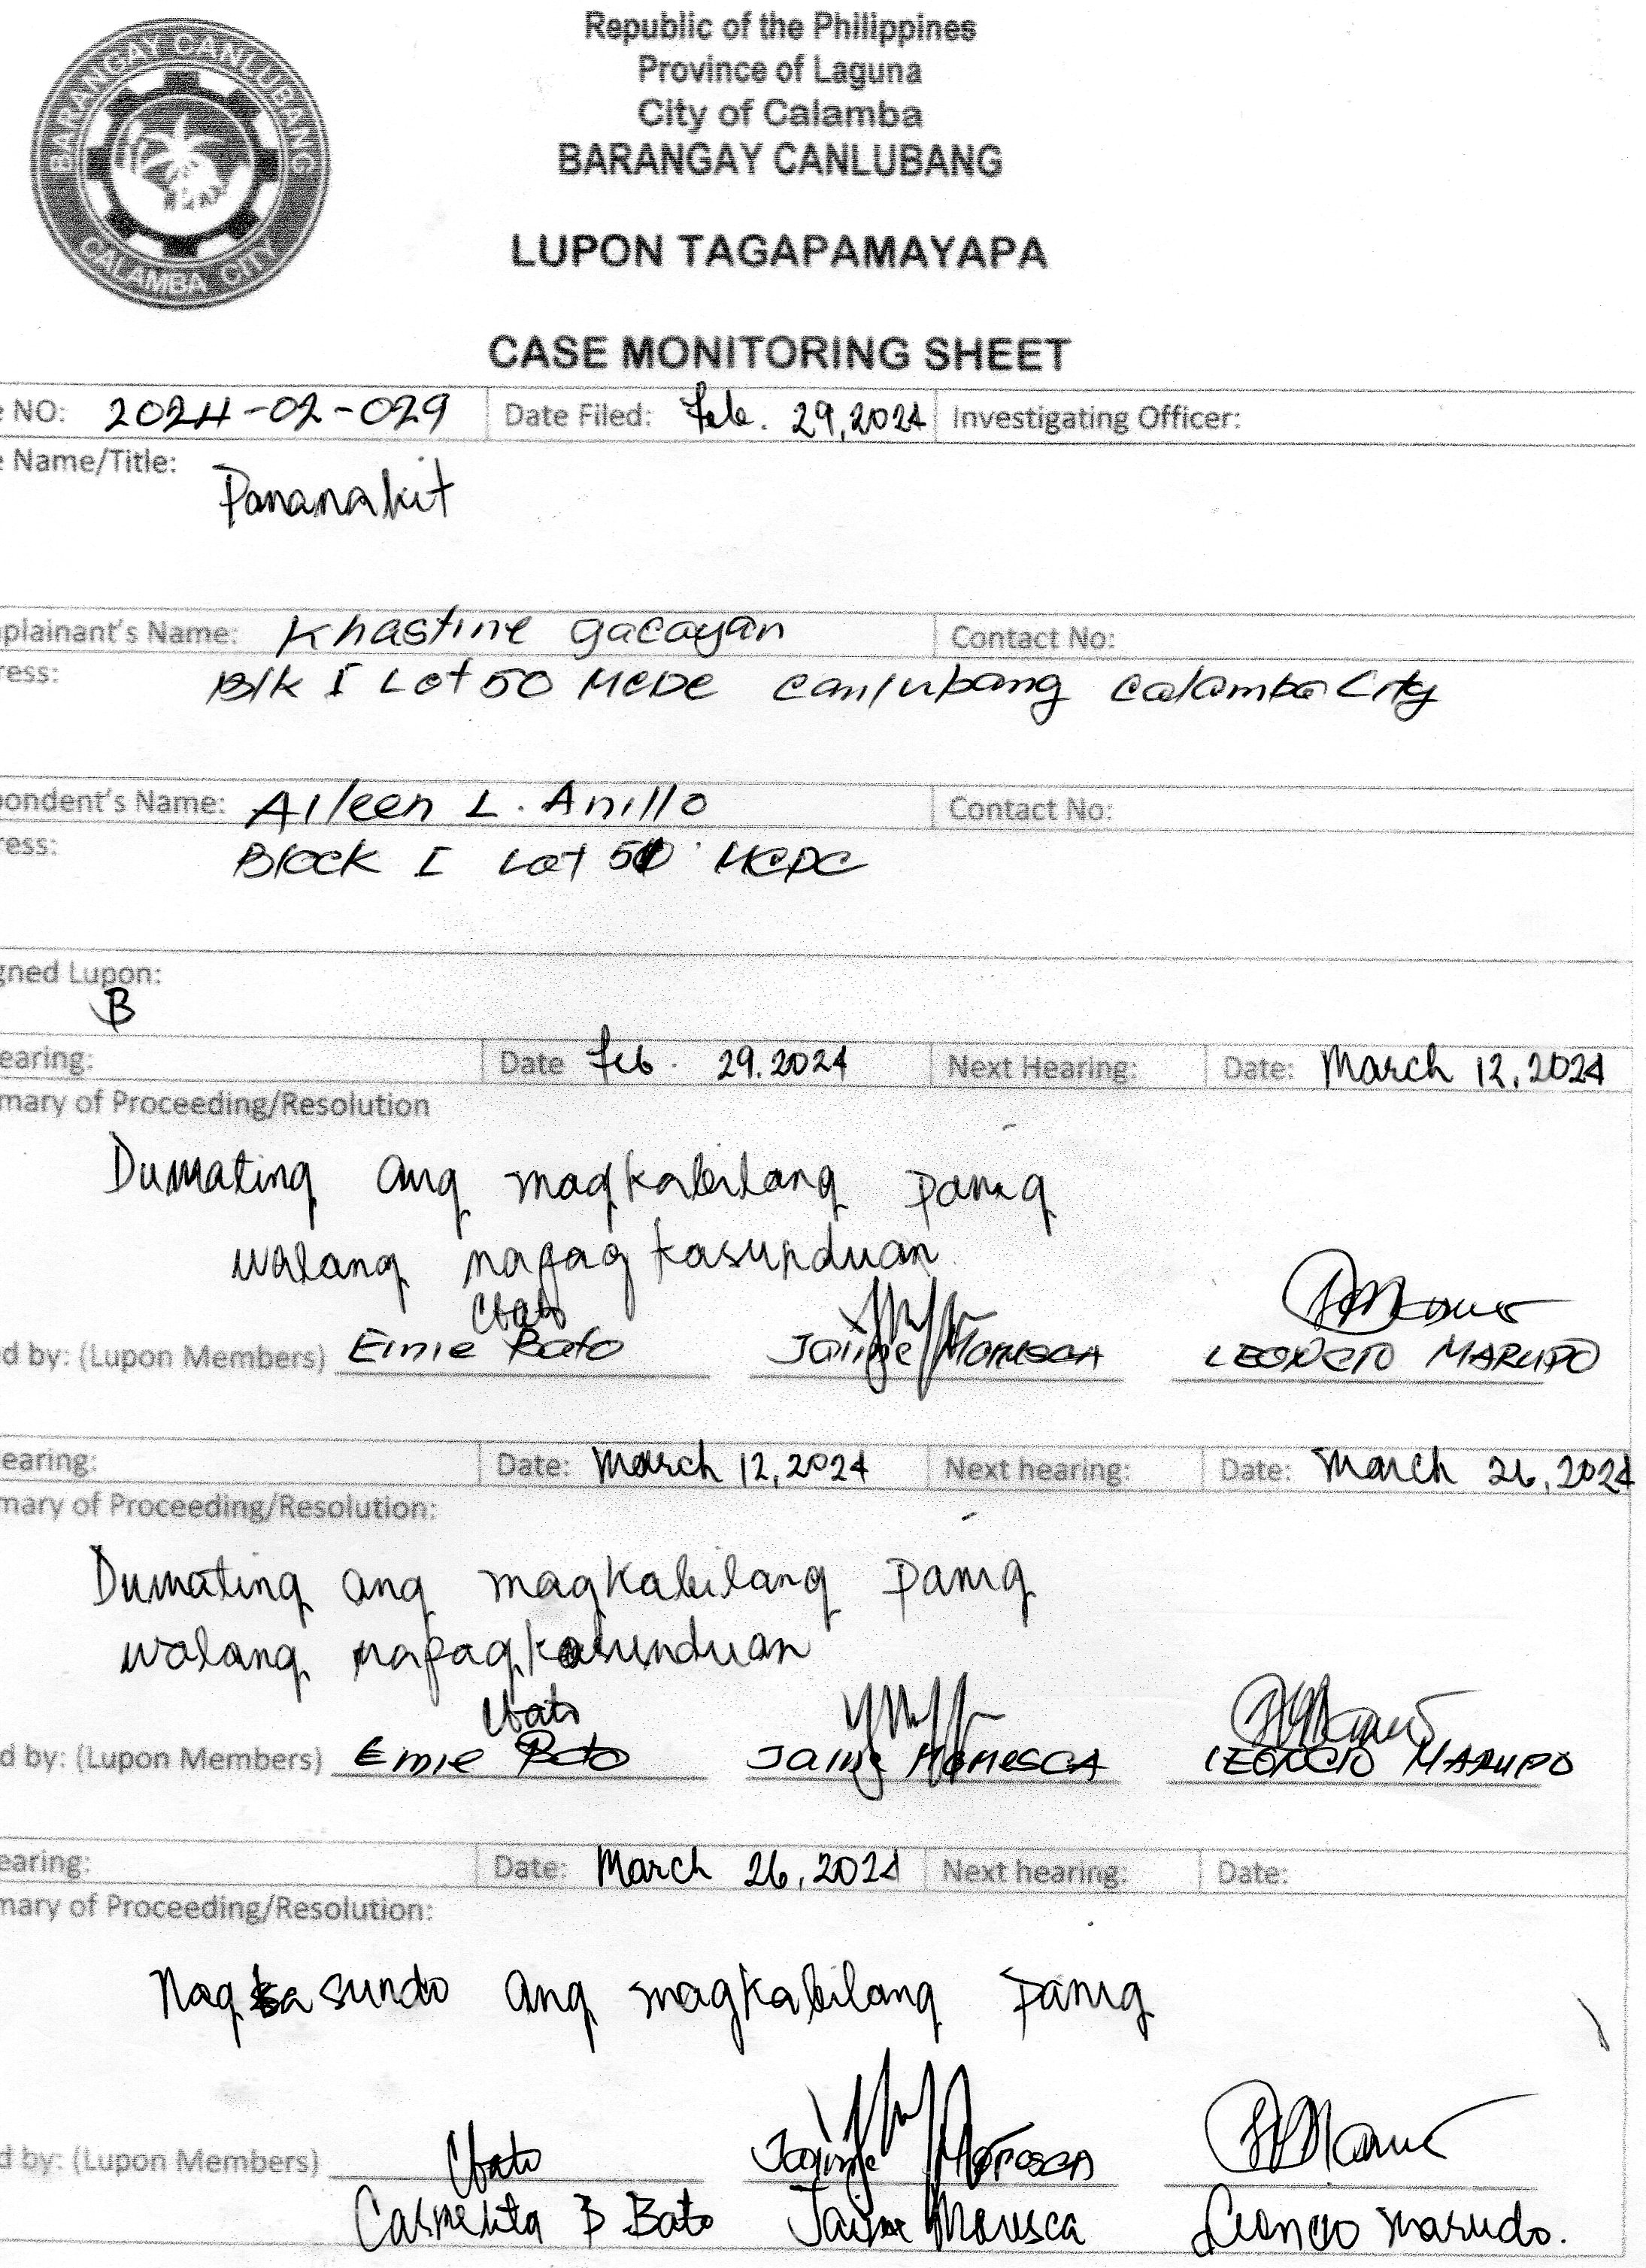 BARANGAY CANLUBANG
CALAMBA CITY
Republic of the Philippines
Province of Laguna
City of Calamba
BARANGAY CANLUBANG
LUPON TAGAPAMAYAPA
CASE MONITORING SHEET
NO: 2024-02-029 Date Filed: Feb. 29, 2024 Investigating Officer:
Name/Title:
Pananakit
plainant's Name: Khastine gacayan Contact No:
ress: Blk I Lot 50 MCDC canlubang calamba City
pondent's Name: Aileen L. Anillo Contact No:
ress: Block I Lot MCDC
gned Lupon:
B
earing: Date Feb. 29.2024 Next Hearing: Date: March 12, 2024
mary of Proceeding/Resolution
Dumating ang magkabilang panig
walang napagkasunduan
Cbato
d by: (Lupon Members) Emie Bato Jaime Moresca LEONCIO MARUPO
earing: Date: March 12, 2024 Next hearing: Date: March 26, 2024
mary of Proceeding/Resolution:
Dumating ang magkabilang panig
walang napagkasunduan
Cbato
d by: (Lupon Members) Emie Bato Jaime MORESCA LEONCIO MARUPO
earing: Date: March 26, 2024 Next hearing: Date:
mary of Proceeding/Resolution:
Nagkasundo ang magkabilang panig
d by: (Lupon Members) Cbato Jaime MORESCA
Carmelita B Bato Jaime Moresca Leoncio Marudo.